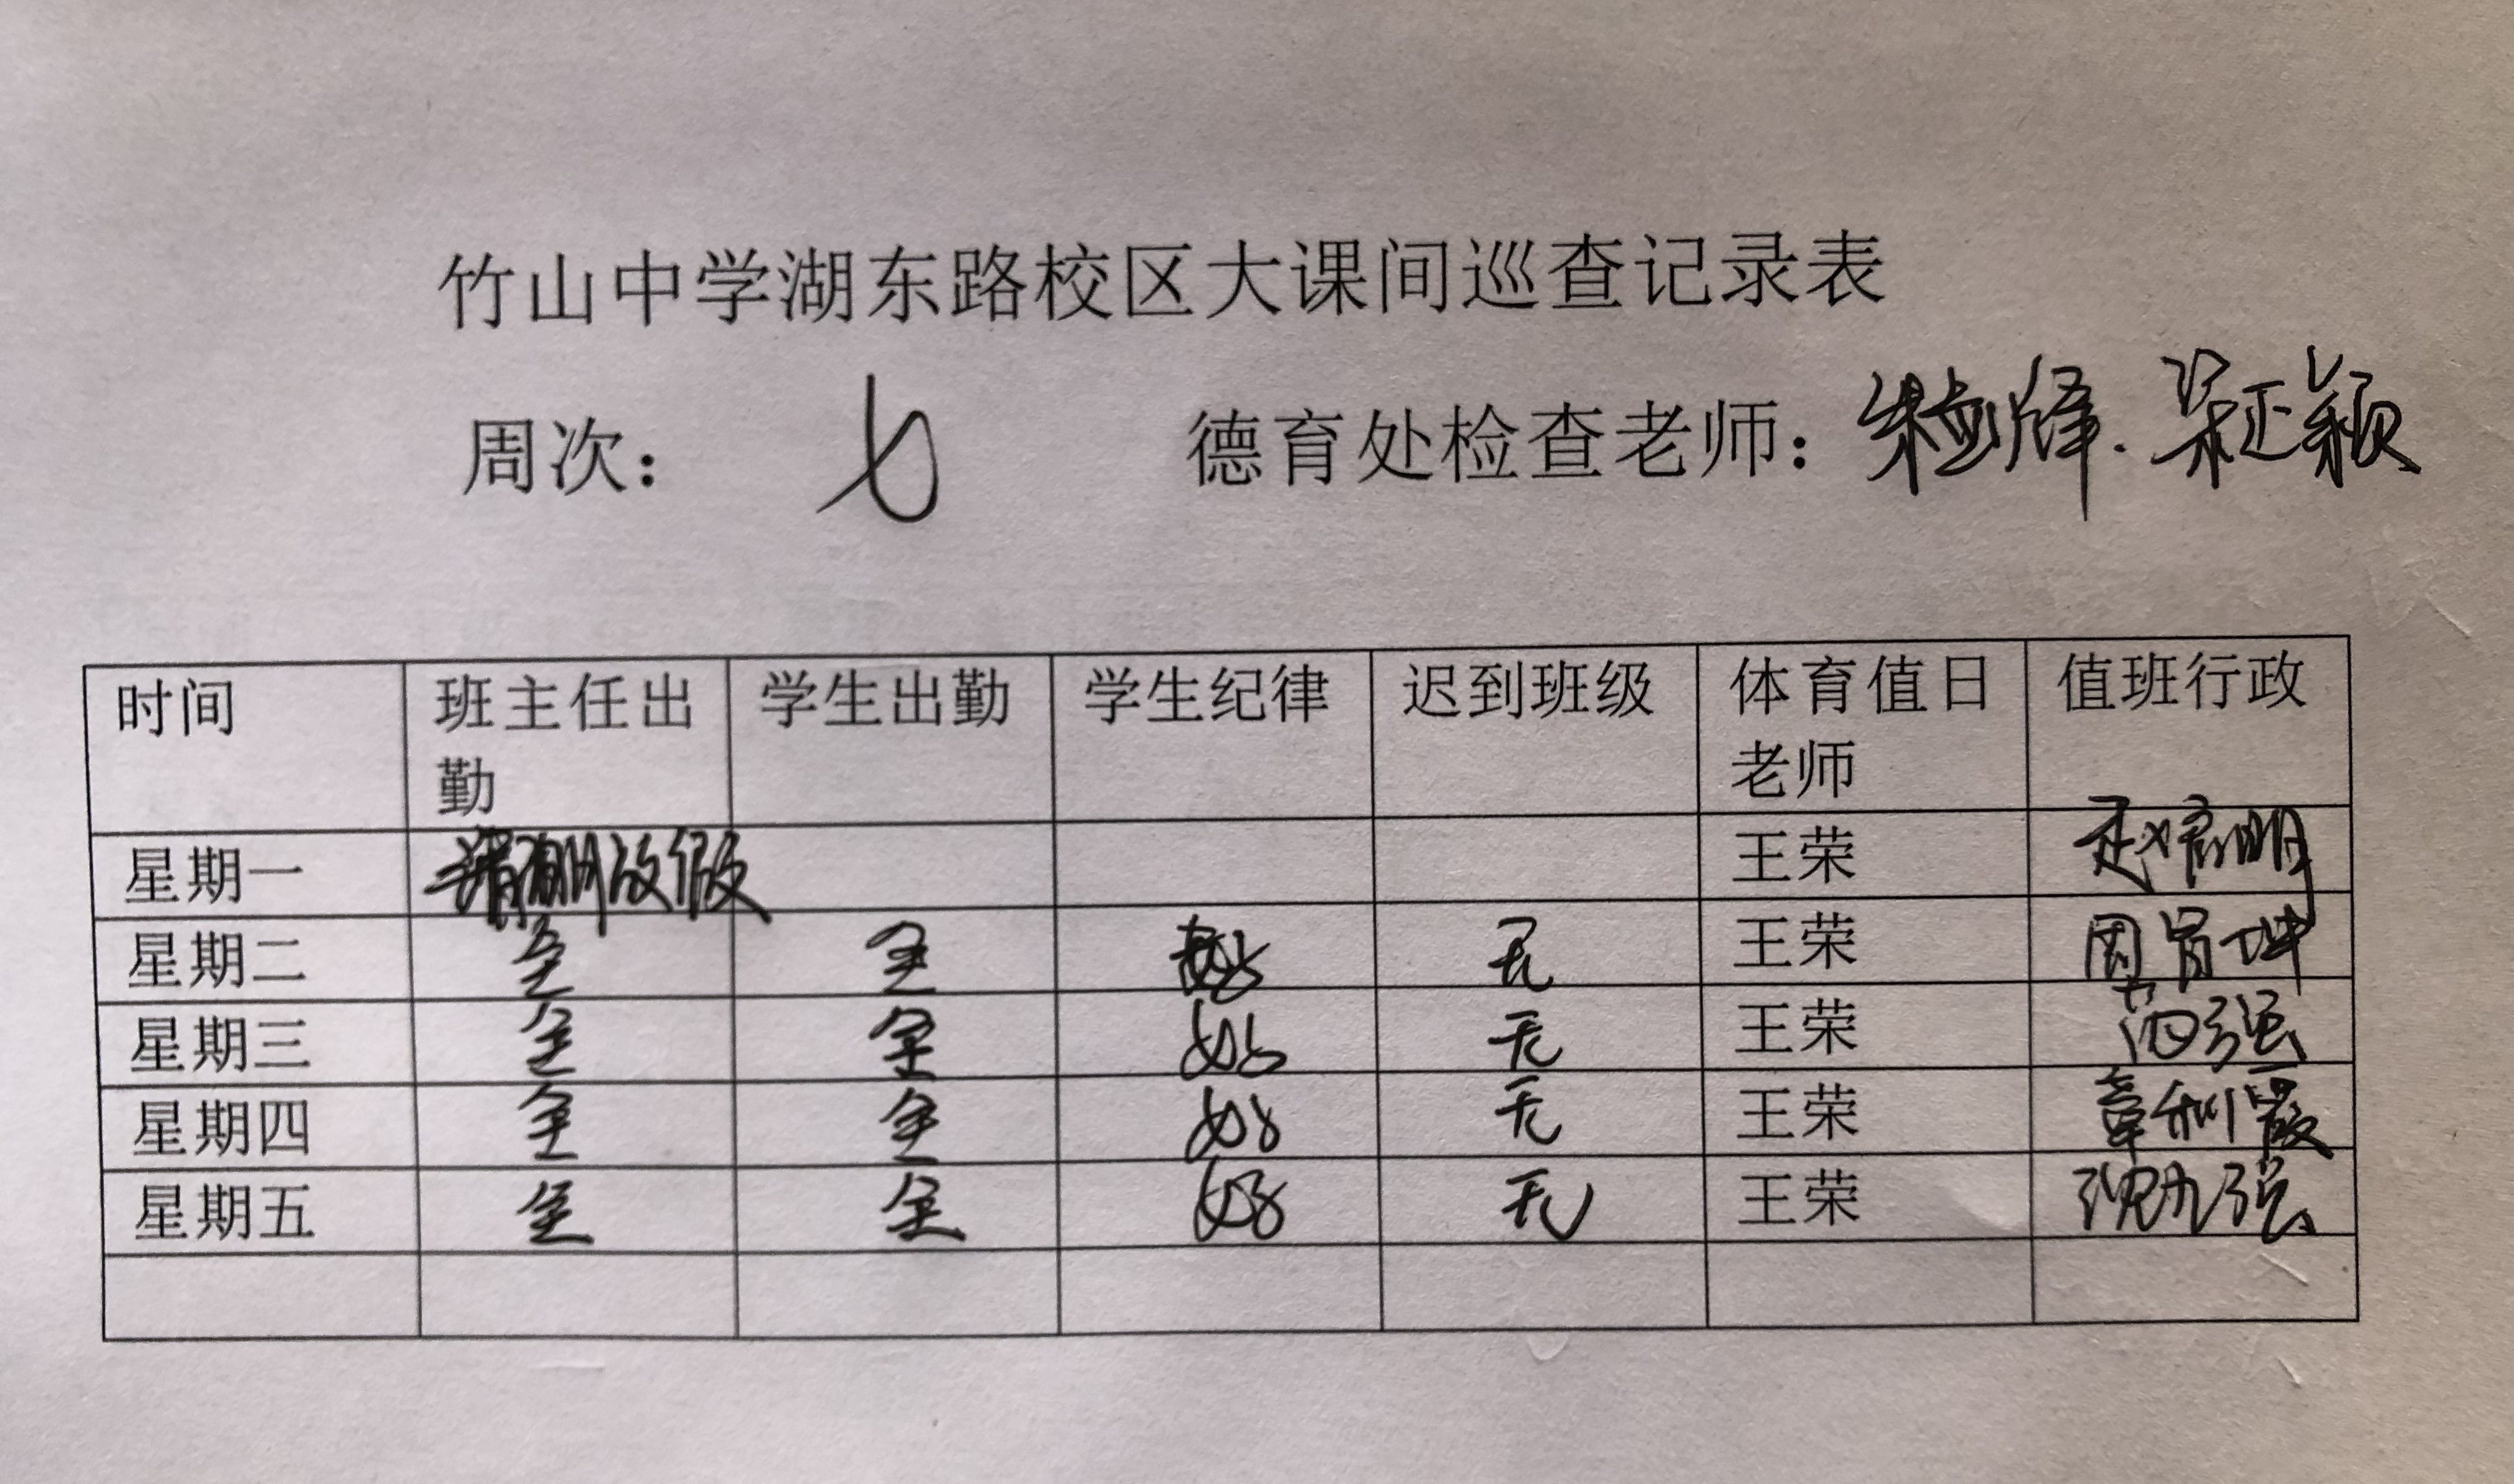 竹山中学湖东路校区大课间巡查记录表
周次： 七 德育处检查老师：朱剑锋.梁正颖
时间 班主任出勤 学生出勤 学生纪律 迟到班级 体育值日老师 值班行政
星期一 清明放假 王荣 赵明
星期二 全 全 好 无 王荣 周育坤
星期三 全 全 好 无 王荣 范强
星期四 全 全 好 无 王荣 章利霞
星期五 全 全 好 无 王荣 强